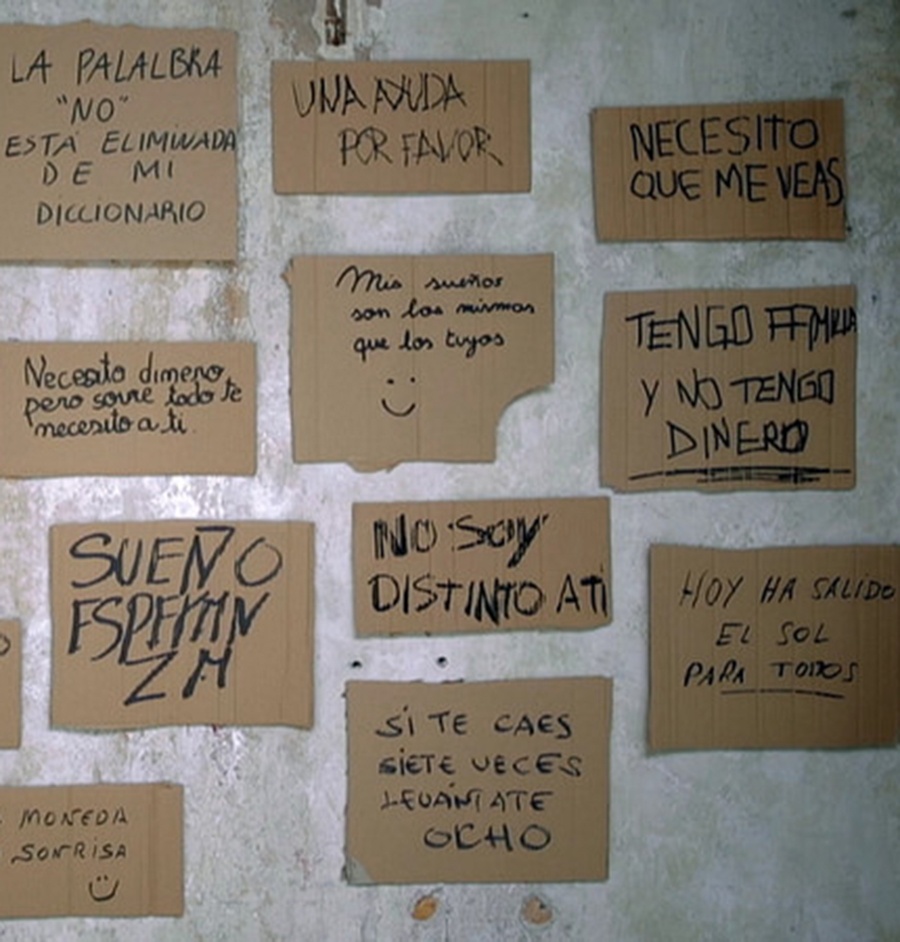 LA PALALBRA
"NO"
ESTÁ ELIMINADA
DE MI
DICCIONARIO
UNA AYUDA
POR FAVOR
NECESITO
QUE ME VEAS
Necesito dinero,
pero sovre todo te
necesito a ti.
Mis sueños
son los mismos
que los tuyos
TENGO FAMILIA
Y NO TENGO
DINERO
SUEÑO
ESPERAN
ZA
NO SOY
DISTINTO A TI
HOY HA SALIDO
EL SOL
PARA TODOS
SI TE CAES
SIETE VECES
LEVÁNTATE
OCHO
MONEDA
SONRISA